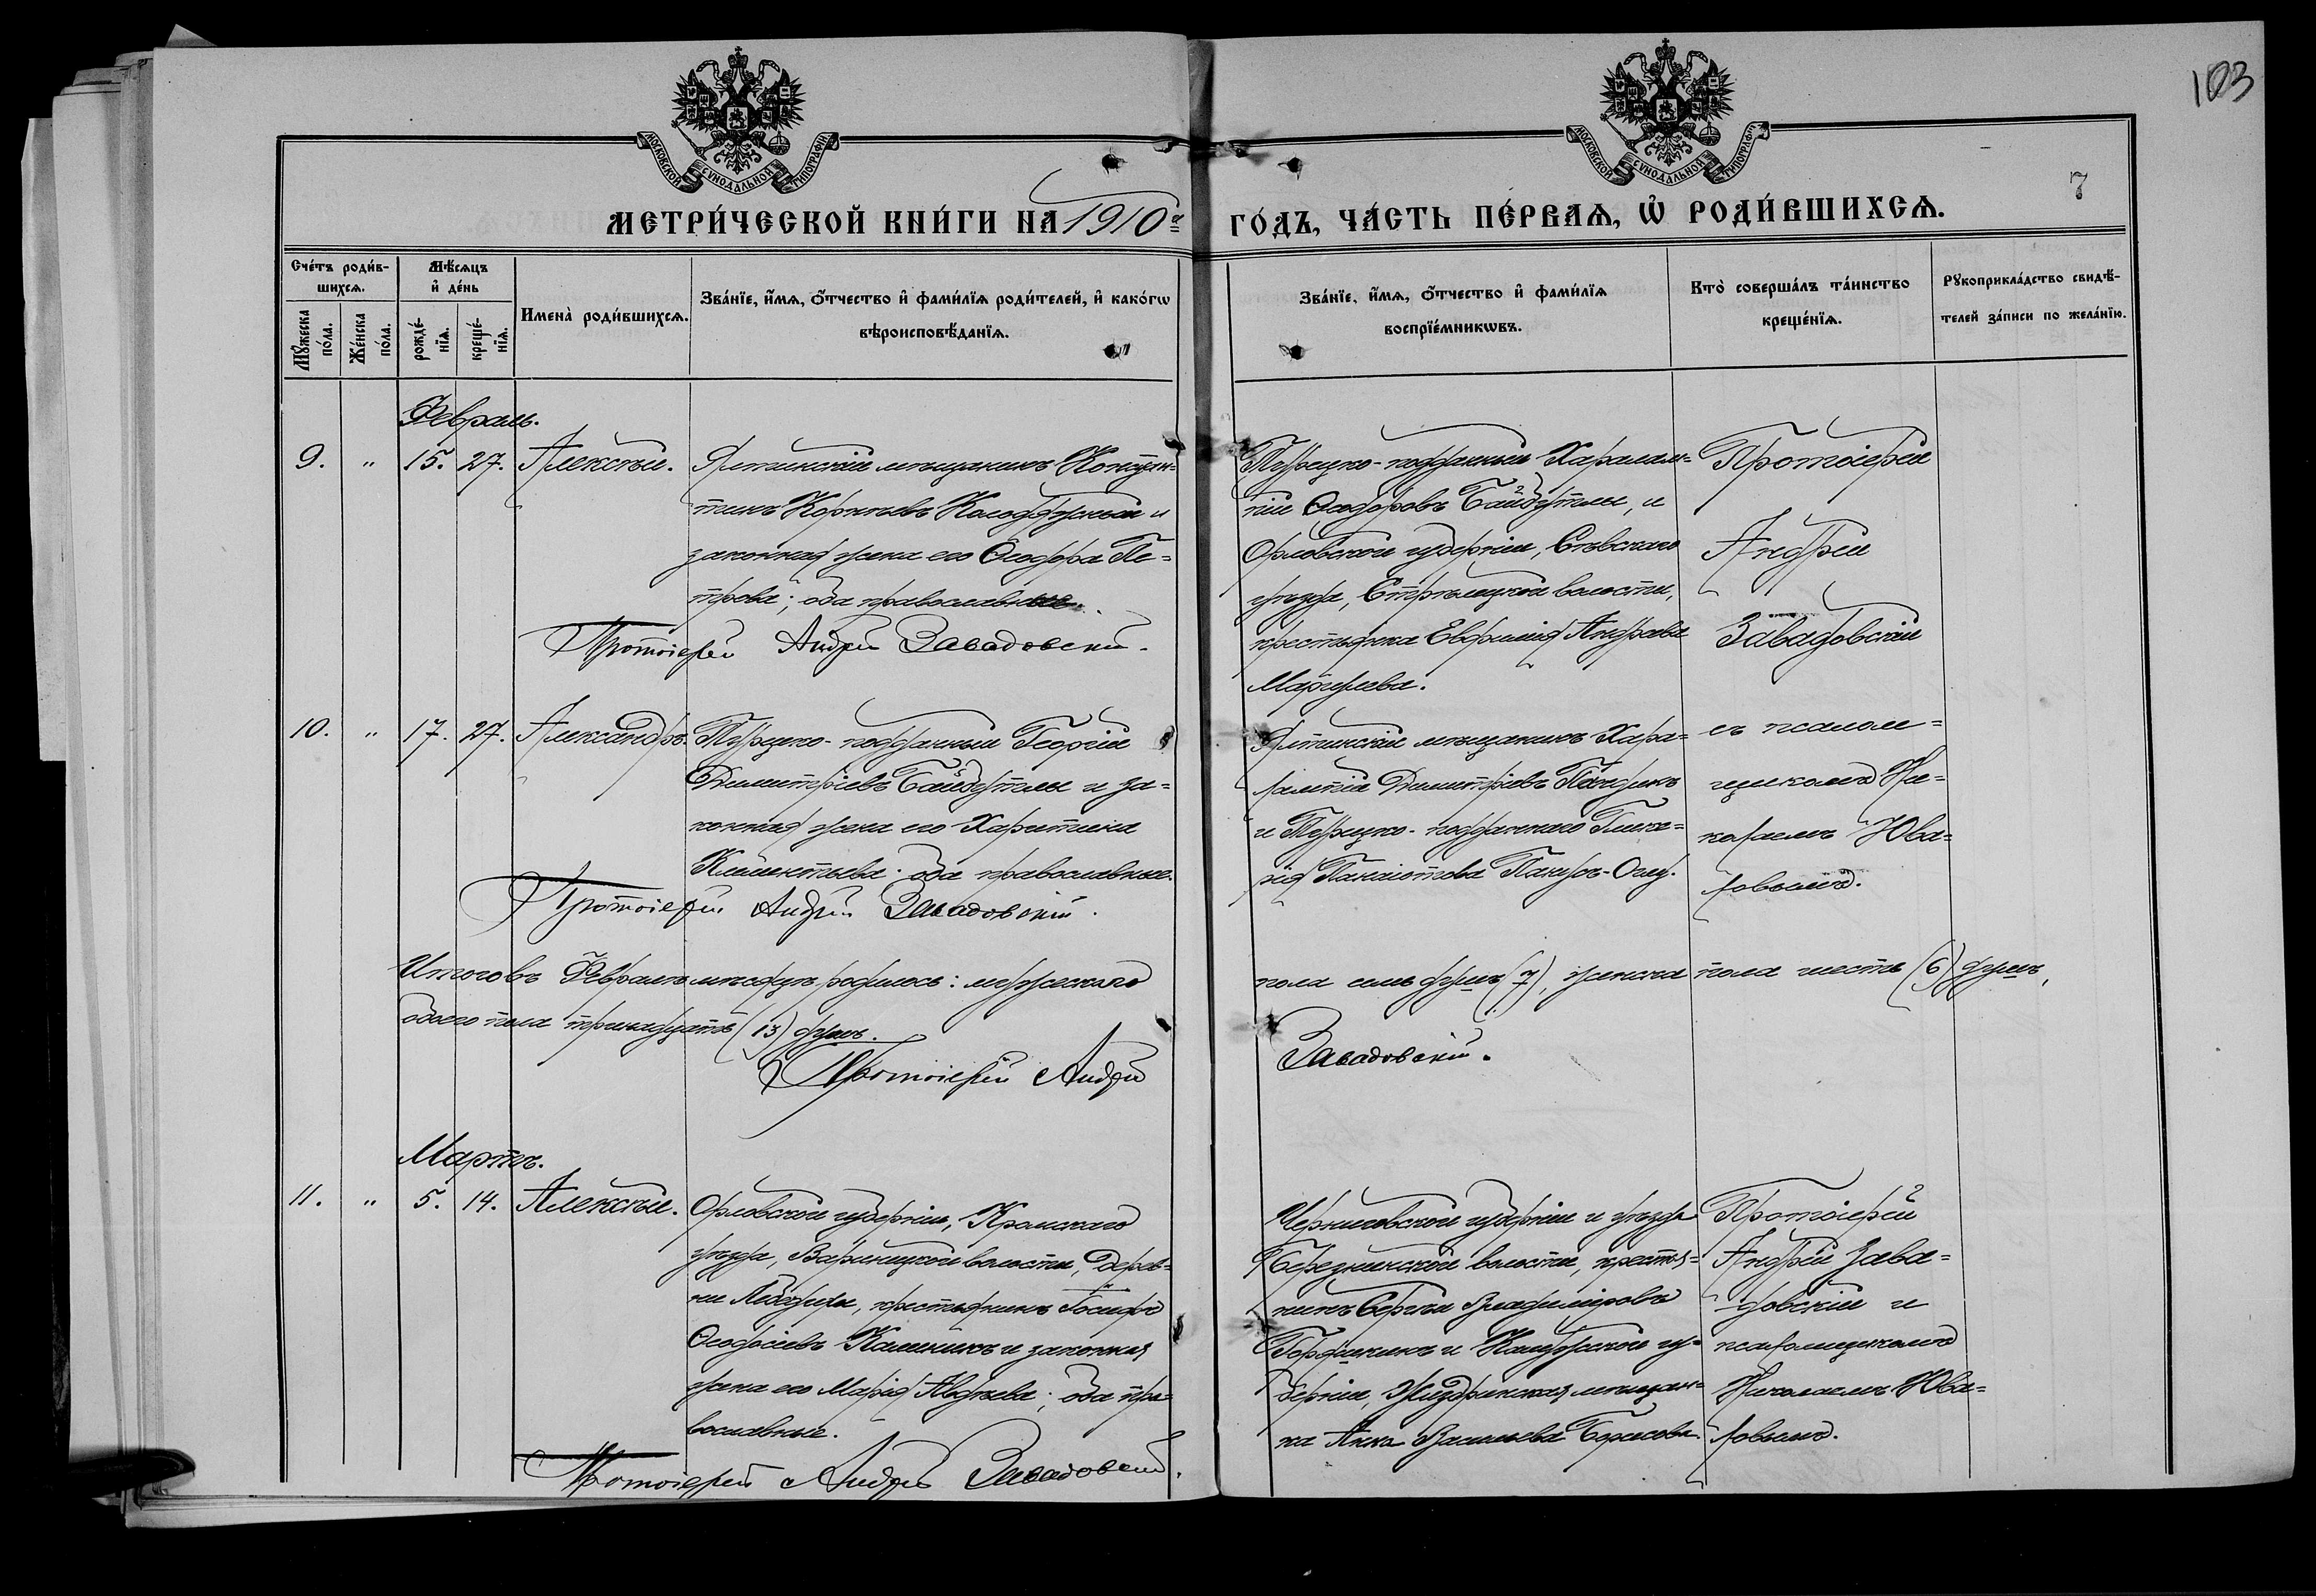 103
7
МОСКОВСКОЙ СѴНОДАЛЬНОЙ ТИПОГРАФІИ
МОСКОВСКОЙ СѴНОДАЛЬНОЙ ТИПОГРАФІИ
МЕТРИ́ЧЕСКОЙ КНИ́ГИ НА 1910й ГО́ДЪ, ЧА́СТЬ ПЕ́РВАѦ, Ѡ҆ РОДИ́ВШИХСѦ.
Сче́тъ роди́в-
шихсѧ.
Мꙋ́жеска по́ла.
Же́нска по́ла.
Мѣ́сѧцъ
и҆ де́нь
рожде́-
нїѧ.
креще́-
нїѧ.
Имена̀ роди́вшихсѧ.
Зва́нїе, и҆́мѧ, о҆́тчество и҆ фами́лїѧ роди́телей, и҆ како́гѡ
вѣроисповѣ́данїѧ.
Зва́нїе, и҆́мѧ, о҆́тчество и҆ фами́лїѧ
воспрїе́мникѡвъ.
Кто̀ соверша́лъ та́инство
креще́нїѧ.
Рꙋкоприкла́дство свидѣ́-
телей за́писи по жела́нїю.
Февраль.
9. " 15. 27. Алексѣй.
Ялтинскій мѣщанинъ Констан-
тинъ Корнѣевъ Колодяжный и
законная жена его Ѳеодора Пе-
трова; оба православные.
Протоіерей Андрей Завадовскій.
Турецко-подданный Харалам-
пій Ѳеодоровъ, и
Орловской губерніи, Сѣвскаго
уѣзда, Стрѣлецкой волости,
крестьянка Евфимія
Протоіерей
Андрей
Завадовскій
10. " 17. 27. Александръ.
Турецко-подданный Георгій
Димитріевъ и за-
конная жена его Харитина
Климентьева; оба православные.
Протоіерей Андрей Завадовскій.
Ялтинскій мѣщанинъ Хара-
лампій Димитріевъ
и Турецко-подданнаго Глике-
рія Панаіотова
съ псалом-
щикомъ Ни-
колаемъ Юва-
ловымъ.
Итого въ Февралѣ мѣсяцѣ родилось: мужескаго
пола семь душъ (7), женска пола шесть (6) душъ,
обоего пола тринадцать (13) душъ.
Протоіерей Андрей
Завадовскій.
Мартъ.
11. " 5. 14. Алексѣй.
Орловской губерніи, Кромскаго
уѣзда, волости, дерев-
ни крестьянинъ Іосифъ
Ѳеодосіевъ и законная
жена его Марія Авдѣева; оба пра-
вославные.
Протоіерей Андрей Завадовскій.
Черниговской губерніи и уѣзда
волости, крестья-
нинъ Сергѣй Владиміровъ
и Калужской гу-
берніи, Жиздринская мѣщан-
ка Анна Васильева Борисова.
Протоіерей
Андрей Зава-
довскій и
псаломщикомъ
Николаемъ Юва-
ловымъ.